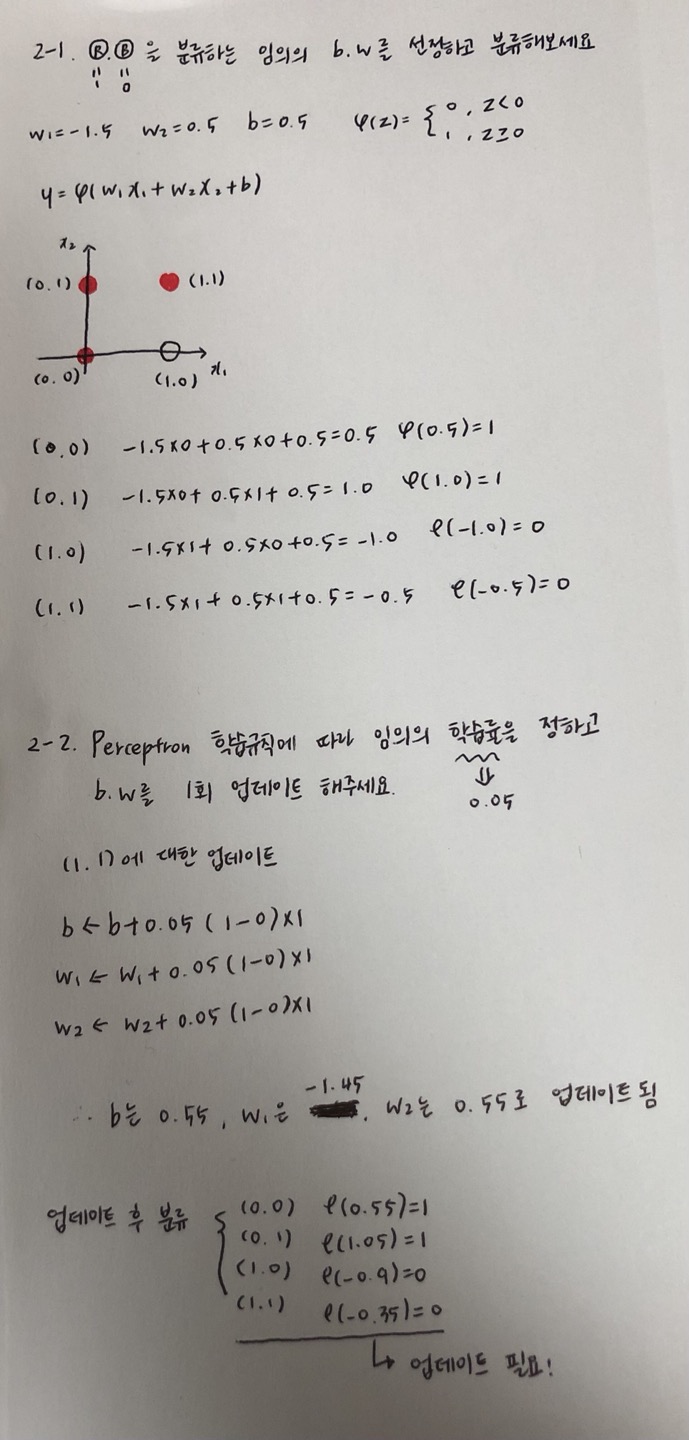 2-1. Ⓡ.Ⓑ을 분류하는 임의의 b.w를 선정하고 분류해보세요
"1 "0
w₁=-1.5 w₂=0.5 b=0.5 φ(z)= { 0, z<0
1, z≥0
y=φ(w₁x₁+w₂x₂+b)
x₂
(0.1) (1.1)
(0.0) (1.0) x₁
(0.0) -1.5×0+0.5×0+0.5=0.5 φ(0.5)=1
(0.1) -1.5×0+0.5×1+0.5=1.0 φ(1.0)=1
(1.0) -1.5×1+0.5×0+0.5=-1.0 φ(-1.0)=0
(1.1) -1.5×1+0.5×1+0.5=-0.5 φ(-0.5)=0
2-2. Perceptron 학습규칙에 따라 임의의 학습률을 정하고
b.w를 1회 업데이트 해주세요.
⇓
0.05
(1.1)에 대한 업데이트
b←b+0.05(1-0)×1
w₁←w₁+0.05(1-0)×1
w₂←w₂+0.05(1-0)×1
∴ b는 0.55, w₁은 -1.45, w₂는 0.55로 업데이트됨
업데이트 후 분류 { (0.0) φ(0.55)=1
(0.1) φ(1.05)=1
(1.0) φ(-0.9)=0
(1.1) φ(-0.35)=0
↳ 업데이트 필요!